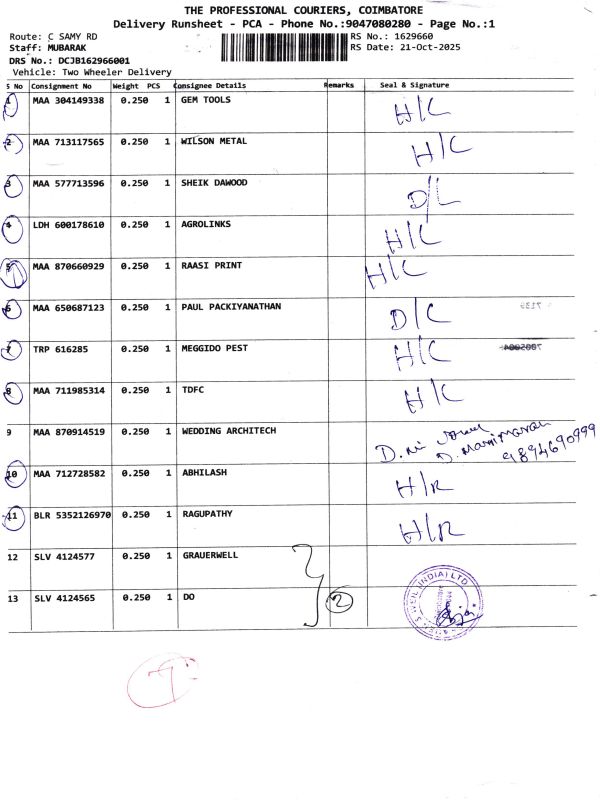 THE PROFESSIONAL COURIERS, COIMBATORE
Delivery Runsheet - PCA - Phone No.:9047080280 - Page No.:1
Route: C SAMY RD RS No.: 1629660
Staff: MUBARAK RS Date: 21-Oct-2025
DRS No.: DCJB162966001
Vehicle: Two Wheeler Delivery
S No Consignment No Weight PCS Consignee Details Remarks Seal & Signature
1 MAA 304149338 0.250 1 GEM TOOLS H/C
2 MAA 713117565 0.250 1 WILSON METAL H/C
3 MAA 577713596 0.250 1 SHEIK DAWOOD D/L
4 LDH 600178610 0.250 1 AGROLINKS H/C
5 MAA 870660929 0.250 1 RAASI PRINT H/C
6 MAA 650687123 0.250 1 PAUL PACKIYANATHAN D/C
7 TRP 616285 0.250 1 MEGGIDO PEST H/C
8 MAA 711985314 0.250 1 TDFC H/C
9 MAA 870914519 0.250 1 WEDDING ARCHITECH
D. Manimaran
9894690999
10 MAA 712728582 0.250 1 ABHILASH H/R
11 BLR 5352126970 0.250 1 RAGUPATHY H/R
12 SLV 4124577 0.250 1 GRAUERWELL
13 SLV 4124565 0.250 1 DO 2
WEIL (INDIA) LTD